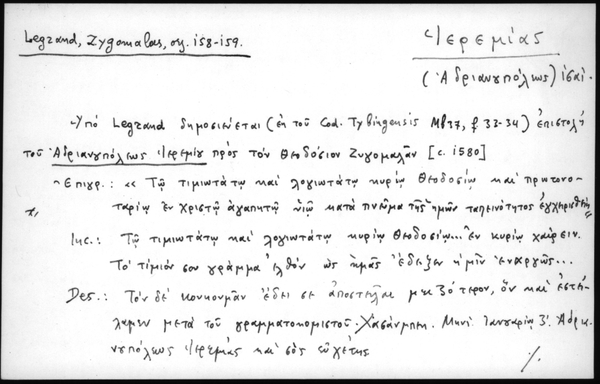 Legrand, Zygomalas, σσ. 158-159.
Ἱερεμίας
(Ἀδριανουπόλεως) ις΄ αἰ.
Ὑπό Legrand δημοσιεύεται (ἐκ τοῦ Cod. Tybingensis Mb 37, f 33-34) ἐπιστολή
τοῦ Ἀδριανουπόλεως Ἱερεμίου πρός τόν Θεοδόσιον Ζυγομαλᾶν [c. 1580]
Ἐπιγρ.: « Τῷ τιμιωτάτῳ καί λογιωτάτῳ κυρίῳ Θεοδοσίῳ καί πρωτονο-
ταρίῳ ἐν Χριστῷ ἀγαπητῷ υἱῷ κατά πνεῦμα τῆς ἡμῶν ταπεινότητος ἐγχειρισθείη»
Inc.: Τῷ τιμιωτάτῳ καί λογιωτάτῳ κυρίῳ Θεοδοσίῳ... ἐν κυρίῳ χαίρειν.
Τό τίμιόν σου γράμμα ἐλθόν ὡς ἡμᾶς ἔδειξεν ἡμῖν ἐναργῶς...
Des.: Τόν δέ κουκουμᾶν ἔδει σε ἀποστεῖλαι μικρότερον, ὅν καί ἐστεί-
λαμεν μετά τοῦ γραμματοκομιστοῦ Χασάνμπεη. Μηνί Ἰανουαρίῳ 3΄. Ἀδρια-
νουπόλεως Ἱερεμίας καί σός εὐχέτης
./.